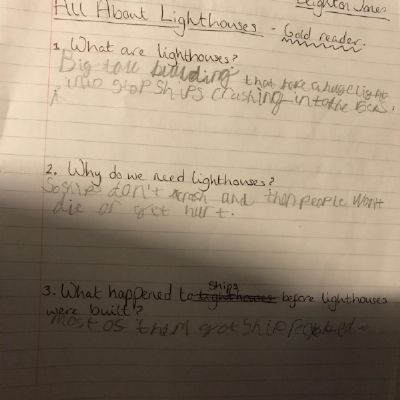 Leighton Jones
All About Lighthouses - Gold reader.
1. What are lighthouses?
Big tall building that have a huge light
who stop ships crashing into the
2. Why do we need lighthouses?
So ships don't crash and then people won't
die or get hurt.
3. What happened to ships before lighthouses
were built?
most os them got